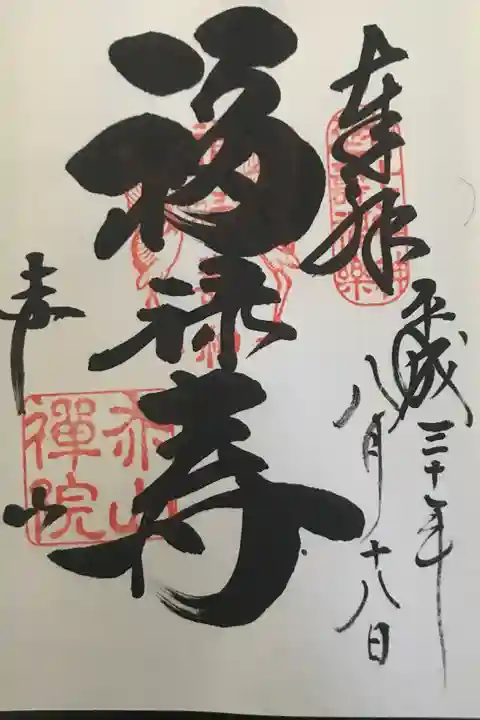 奉拝
平成三十年
八月十八日
福禄寿
赤山
赤山
禅院